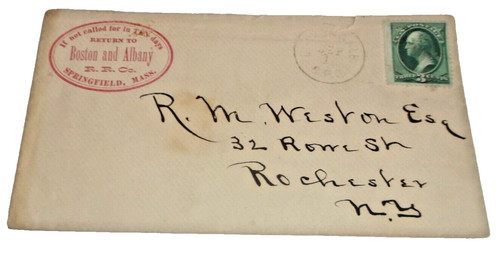 If not called for in Ten days
RETURN TO
Boston and Albany
R. R. Co.
SPRINGFIELD, MASS.
3
R. M. Weston Esq
32 Rowe St
Rochester
N.Y